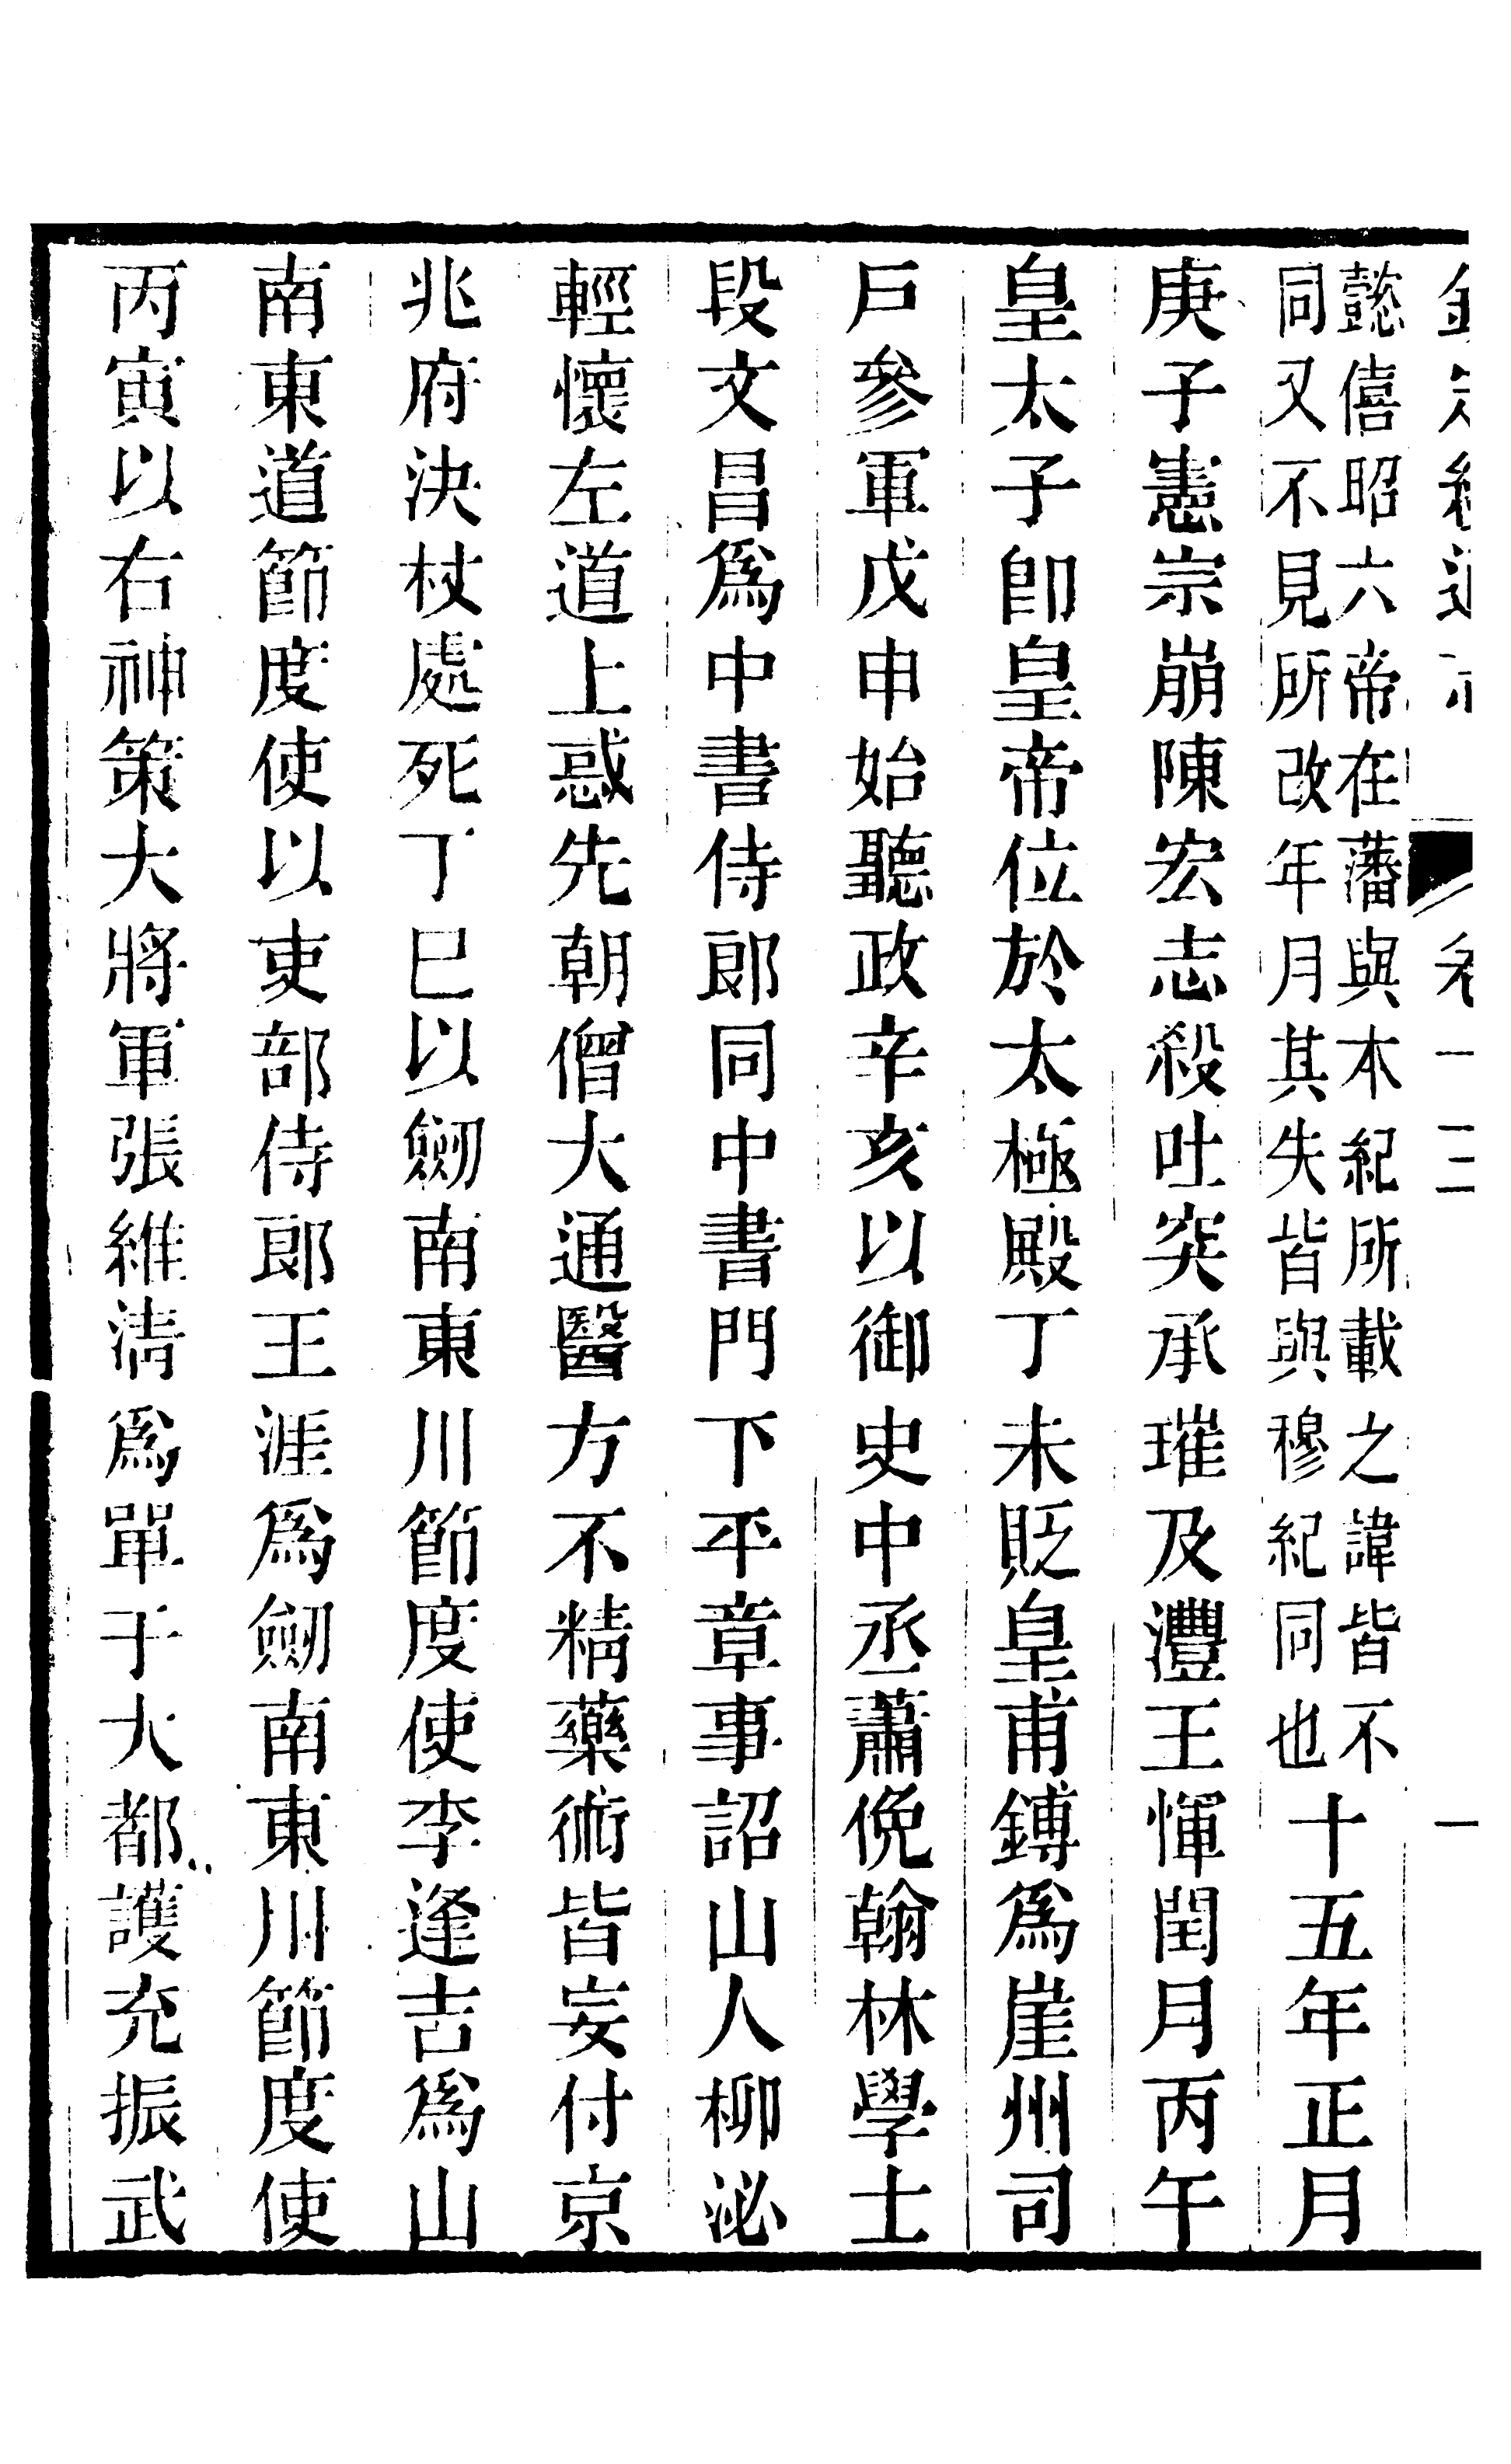 懿僖昭六帝在藩與本紀所載之諱皆不
同又不見所改年月其失皆與穆紀同也
十五年正月
庚子憲宗崩陳宏志殺吐突承璀及灃王惲閏月丙午
皇太子卽皇帝位於太極殿丁未貶皇甫鎛爲崖州司
戶參軍戊申始聽政辛亥以御史中丞蕭俛翰林學士
段文昌爲中書侍郎同中書門下平章事詔山人柳泌
輕懷左道上惑先朝僧大通醫方不精藥術皆妄付京
兆府決杖處死丁巳以劒南東川節度使李逢吉爲山
南東道節度使以吏部侍郎王涯爲劒南東川節度使
丙寅以右神策大將軍張維淸爲單于大都護充振武